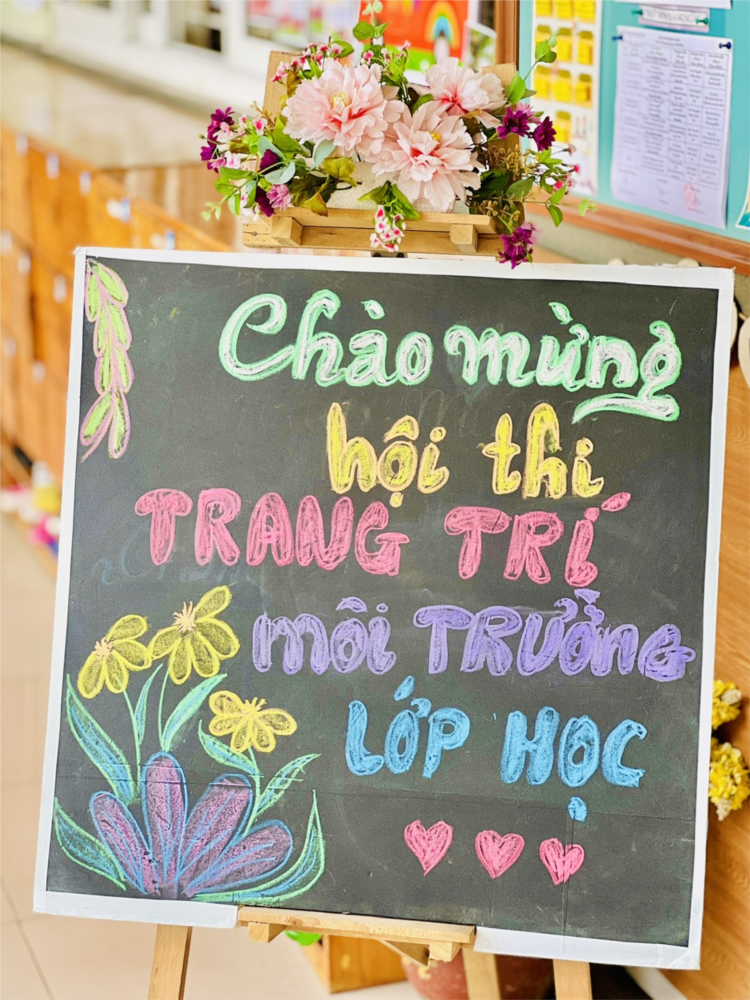 Chào mừng
hội thi
TRANG TRÍ
môi TRƯỜNG
LỚP HỌC